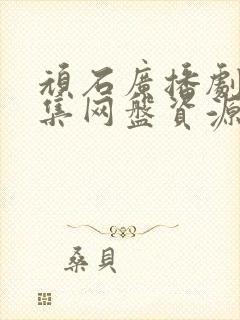 頑石廣播劇
集网盤資源
桑貝